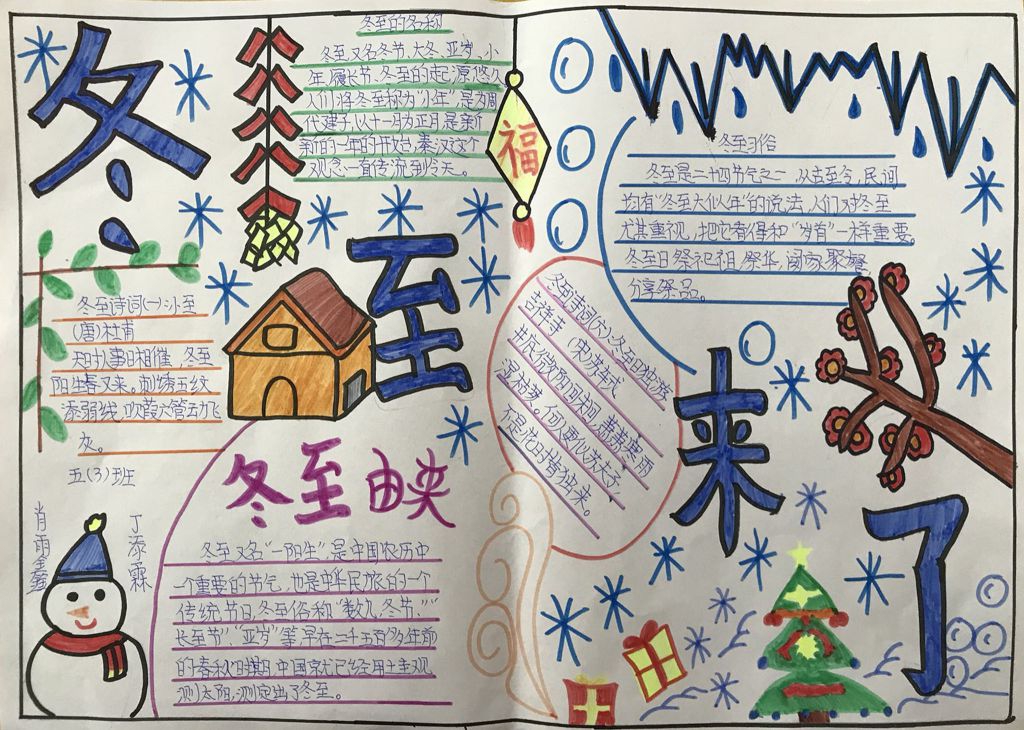 冬至来了
冬至的名称
冬至又名冬节、大冬、亚岁、小
年、履长节、冬至的起源悠久
人们将冬至称为“小年”是为周
代建子,以十一月为正月,是新
新的一年的开始,秦汉这个
观念一直传流到今天。
福
冬至习俗
冬至是二十四节气之一,从古至今,民间
均有“冬至大似年”的说法,人们对冬至
尤其重视,把它看得和“岁首”一样重要。
冬至日祭祀祖,祭华,阖家聚餐
分享祭品。
冬至诗词(一)小至
(唐)杜甫
天时人事日相催,冬至
阳生春又来。刺绣五纹
添弱线,吹葭六管动飞
灰。
五(3)班
肖雨鑫
丁添霖
冬至由来
冬至又名“一阳生”,是中国农历中
一个重要的节气,也是中华民族的一个
传统节日,冬至俗称“数九、冬节,”“
长至节”“亚岁”等,早在二千五百多年前
的春秋时期,中国就已经用土圭观
测太阳,测定出了冬至。
冬至诗词(六)冬至日独游
吉祥寺 (宋)苏轼
井底微阳回未回,萧萧寒雨
湿枯荄。何人更似苏夫子,
不是花时肯独来。